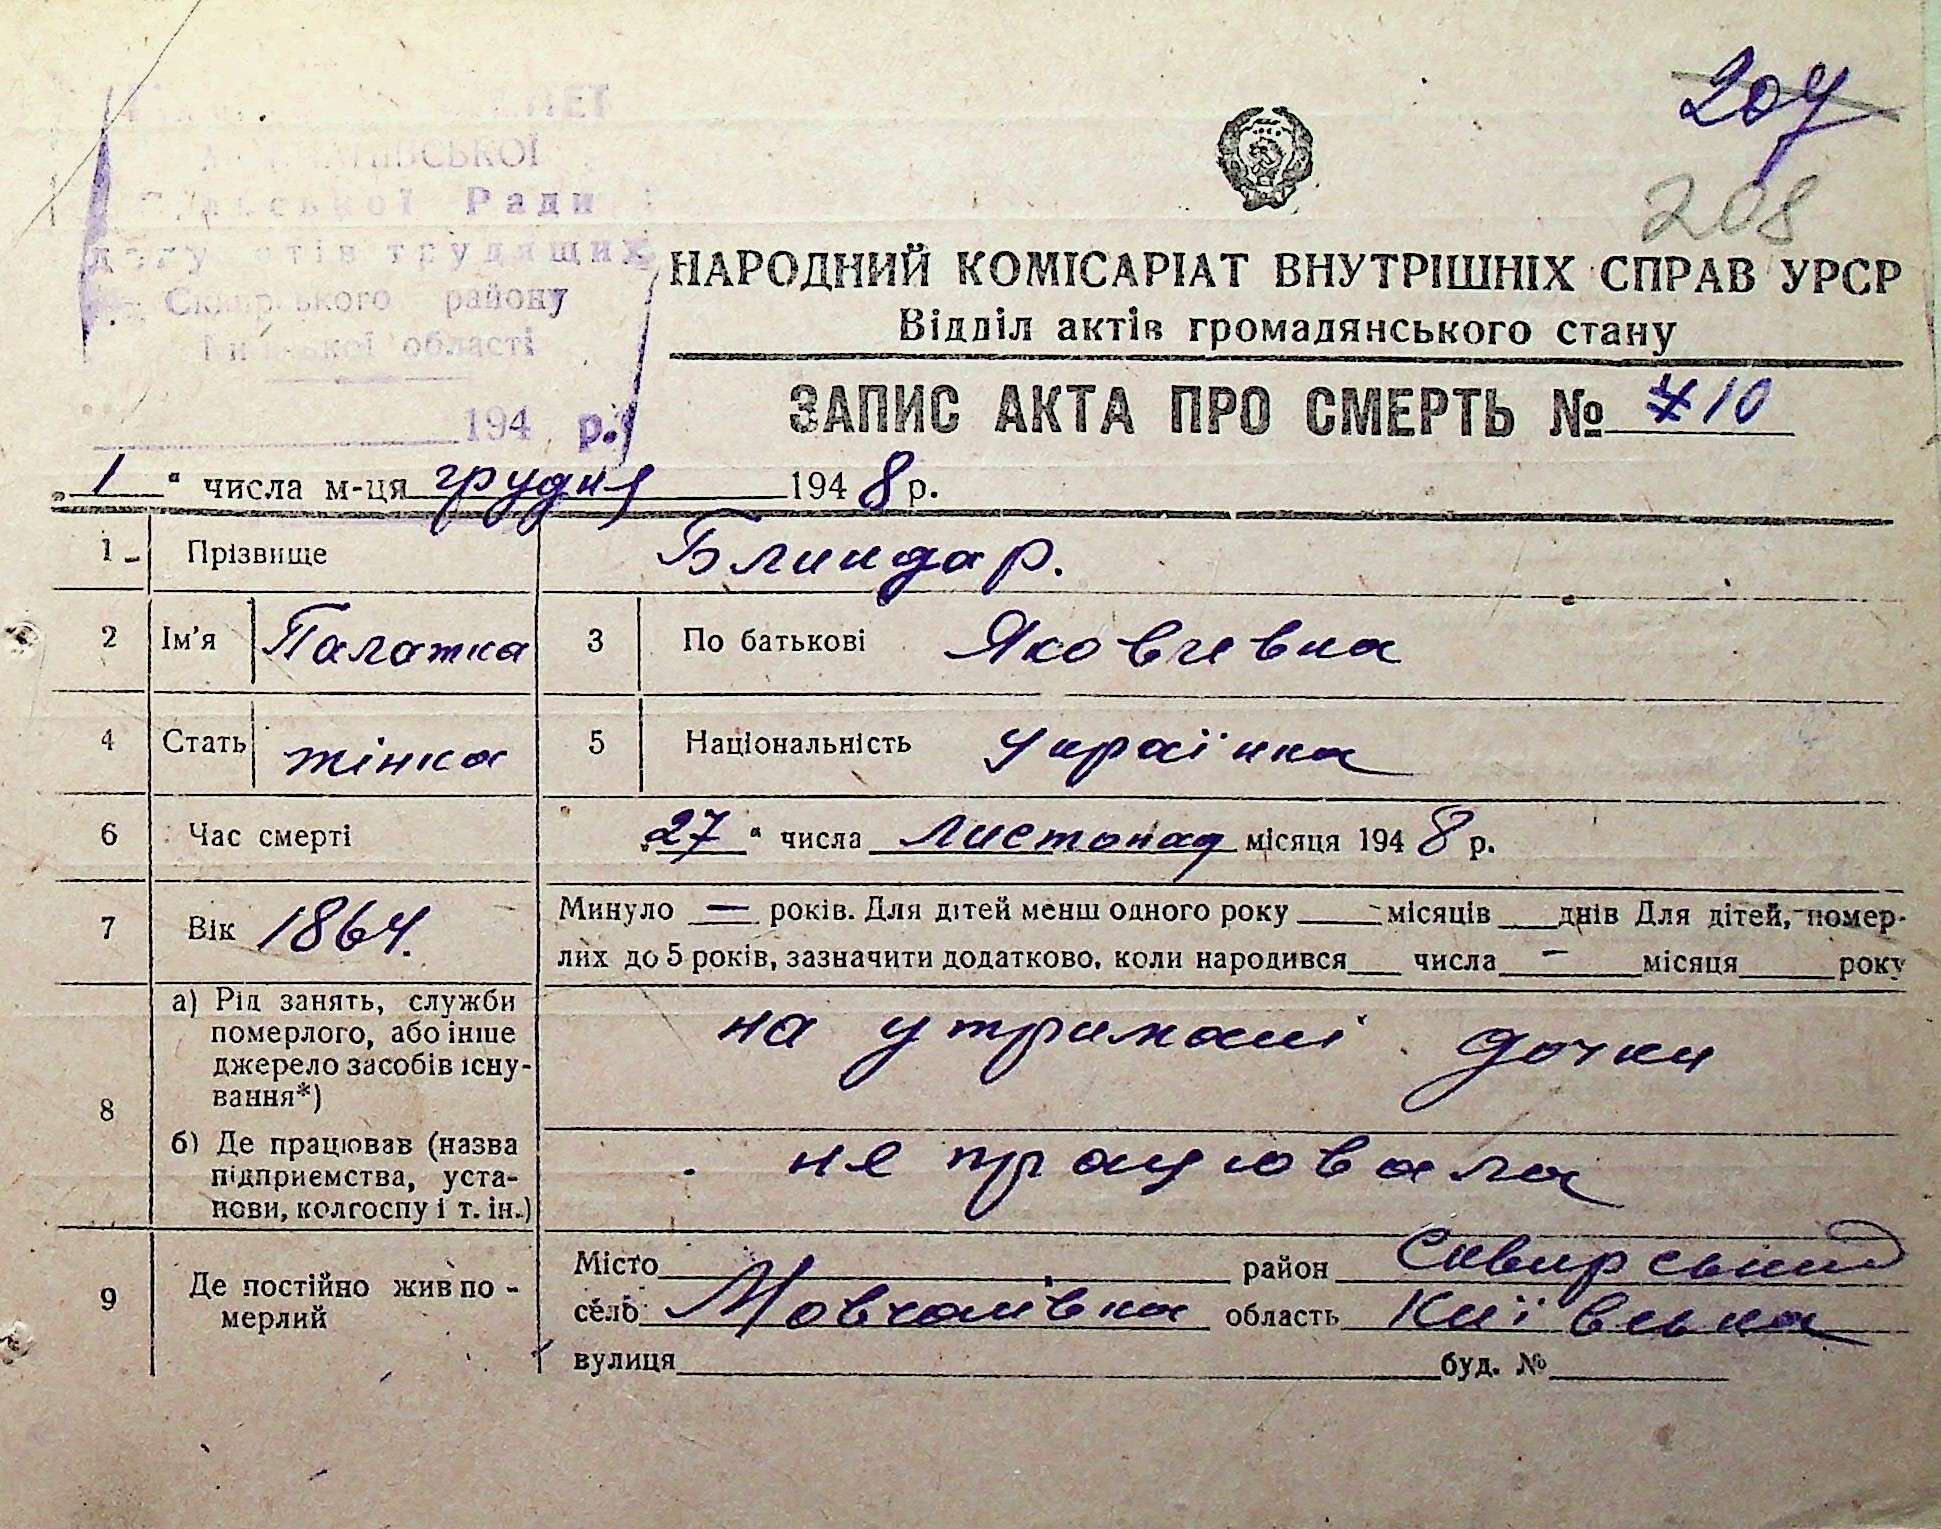 207
208
Ради
трудящих
району
області
194 р.
НАРОДНИЙ КОМІСАРІАТ ВНУТРІШНІХ СПРАВ УРСР
Відділ актів громадянського стану
ЗАПИС АКТА ПРО СМЕРТЬ № 10
„1“ числа м-ця грудня 1948 р.
1 Прізвище Блиндар.
2 Ім'я Палажка 3 По батькові Яковлевна
4 Стать жінка 5 Національність українка
6 Час смерті „27“ числа листопад місяця 1948 р.
7 Вік 1864. Минуло — років. Для дітей менш одного року місяців днів Для дітей, помер-
лих до 5 років, зазначити додатково, коли народився числа — місяця року
8 а) Рід занять, служби
померлого, або інше
джерело засобів існу-
вання*)
на утримані дочки
б) Де працював (назва
підприємства, уста-
нови, колгоспу і т. ін.)
не працювала
9 Де постійно жив по-
мерлий
Місто район Сквирський
село Мовчанівка область Київська
вулиця буд. №